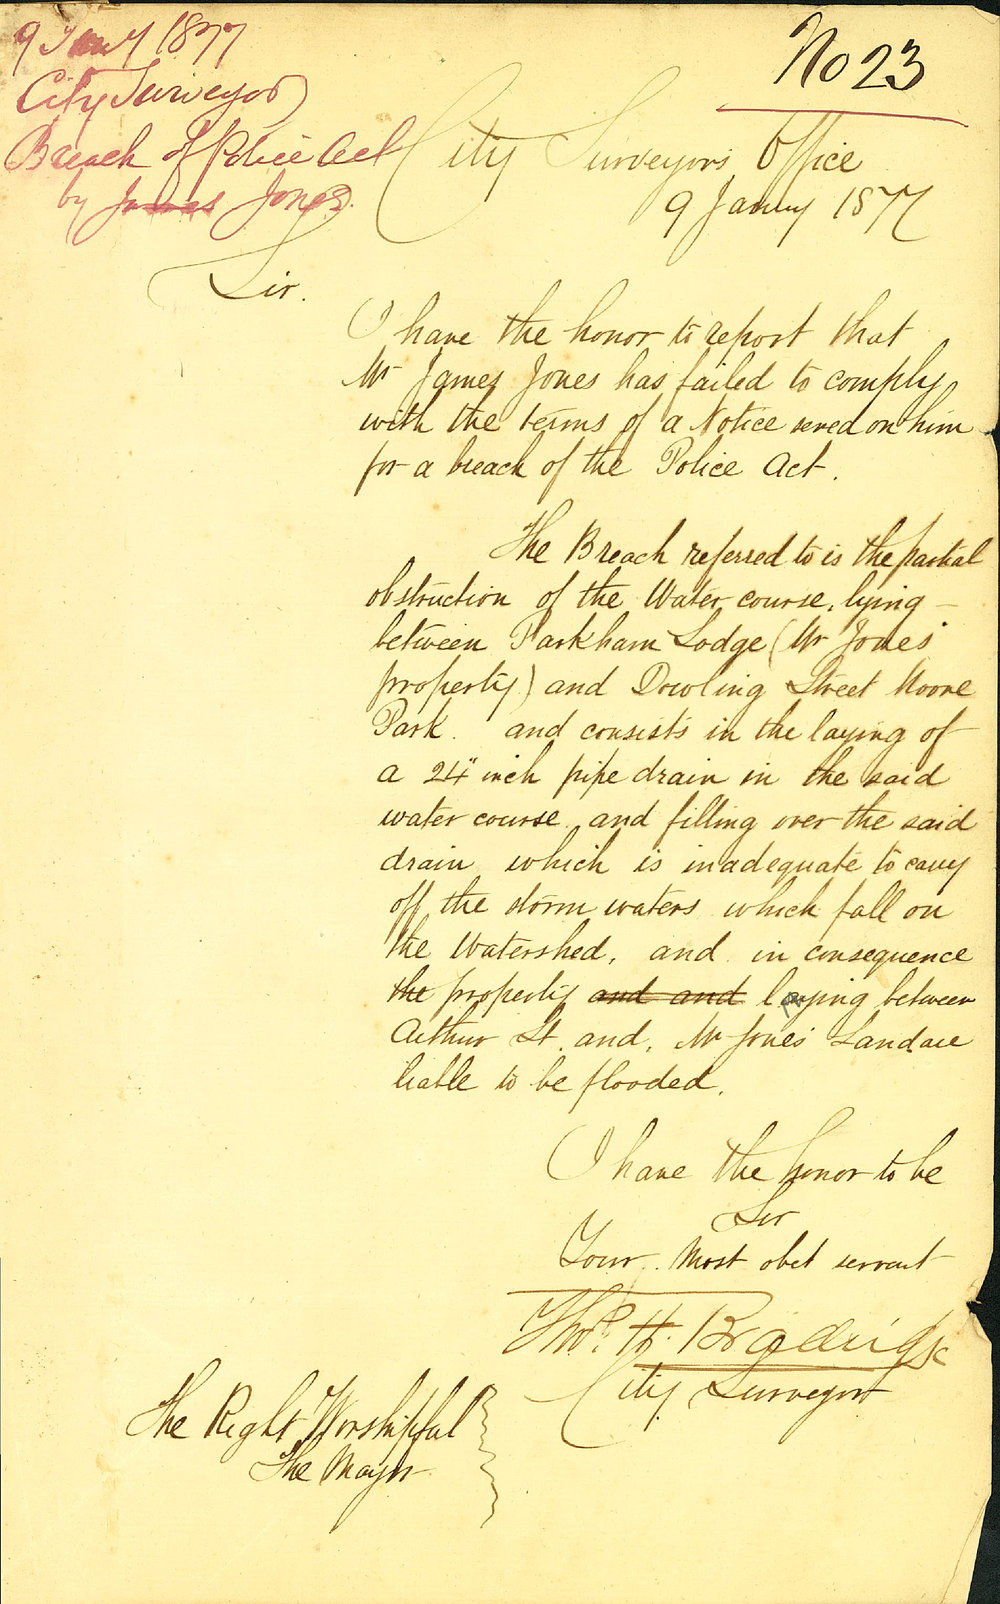 9 Jany 1877
City Surveyor
Breach of Police Act
by James Jones.
No 23
City Surveyors Office
9 Janry 1877
Sir.
I have the honor to report that
Mr James Jones has failed to comply
with the terms of a Notice served on him
for a breach of the Police Act.
The Breach referred to is the partial
obstruction of the Water course, lying –
between Parkham Lodge (Mr Jones'
property) and Dowling Street Moore
Park. and consists in the laying of
a 24" inch pipe drain in the said
water course and filling over the said
drain which is inadequate to carry
off the storm waters which fall on
the Watershed, and in consequence
the property and and lying between
Arthur St. and, Mr Jones' Land are
liable to be flooded.
I have the honor to be
Sir
Your Most obet servant
Thos. H. Bradridge
City Surveyor
The Right Worshipful
The Mayor